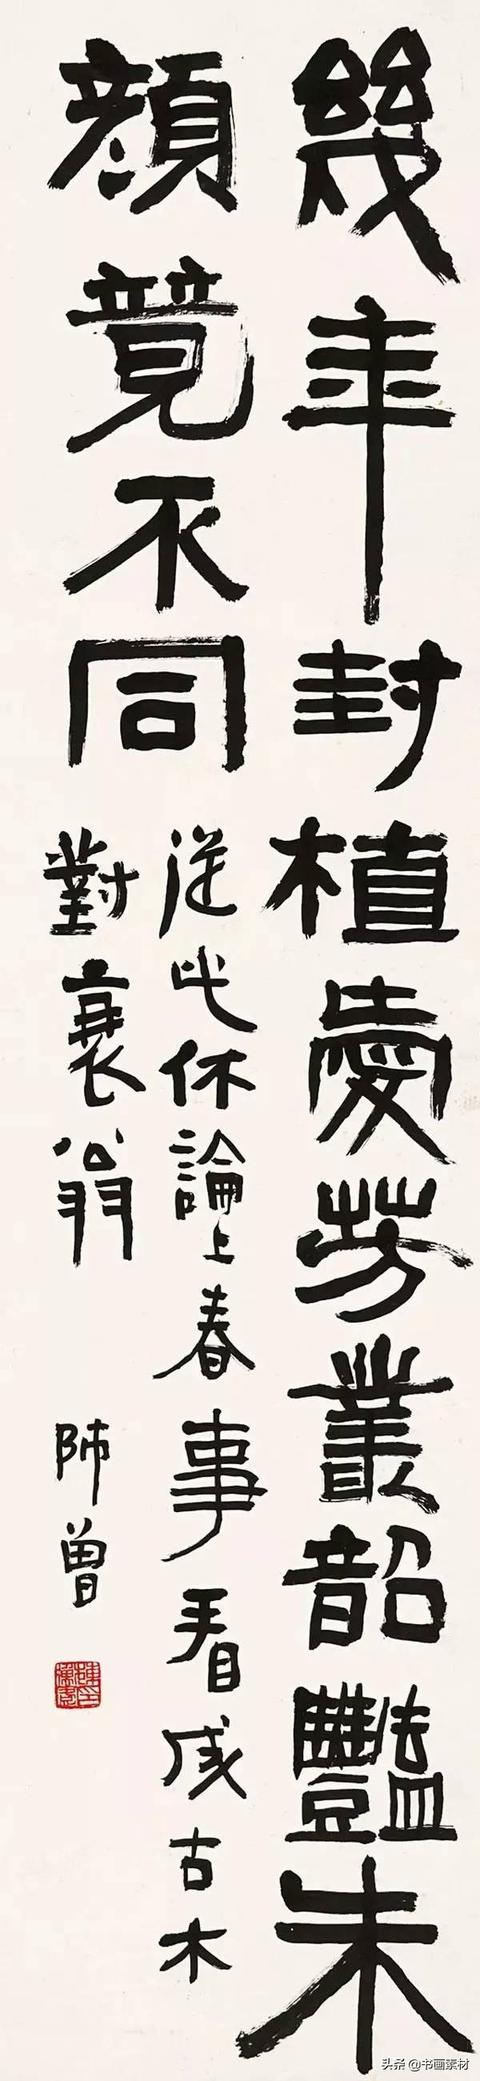 幾年封植愛芳叢韶豔朱
顔竟不同
從此休論上春事看成古木
對衰翁
師曾
頭条 @书画素材